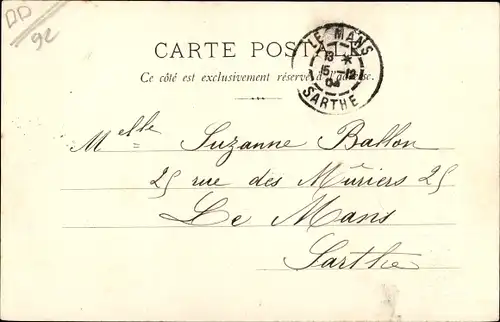 DD
92
CARTE POSTALE
Ce côté est exclusivement réservé à l'adresse.
LE MANS
13 *
15 - 12
04
SARTHE
Melle Suzanne Ballon
25 rue des Mûriers 25
Le Mans
Sarthe